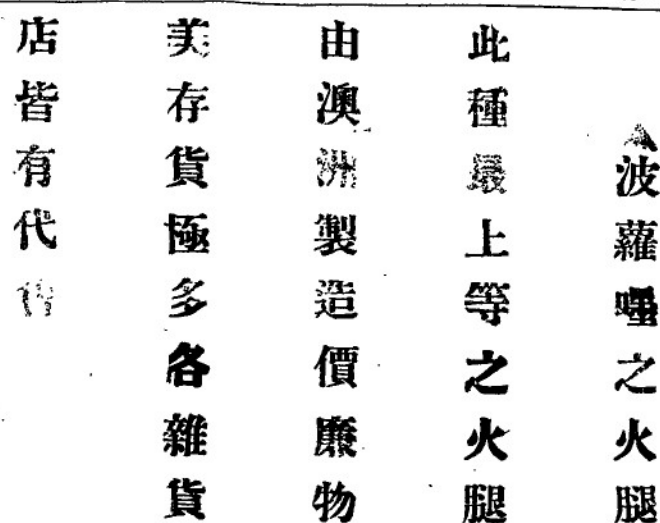 波蘿嚜之火腿
此種最上等之火腿
由澳洲製造價廉物
美存貨極多各雜貨
店皆有代售